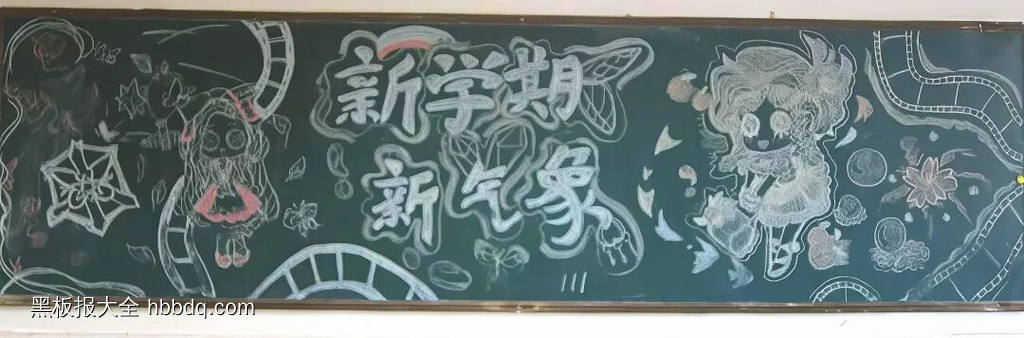 新学期
新气象
黑板报大全 hbbdq.com